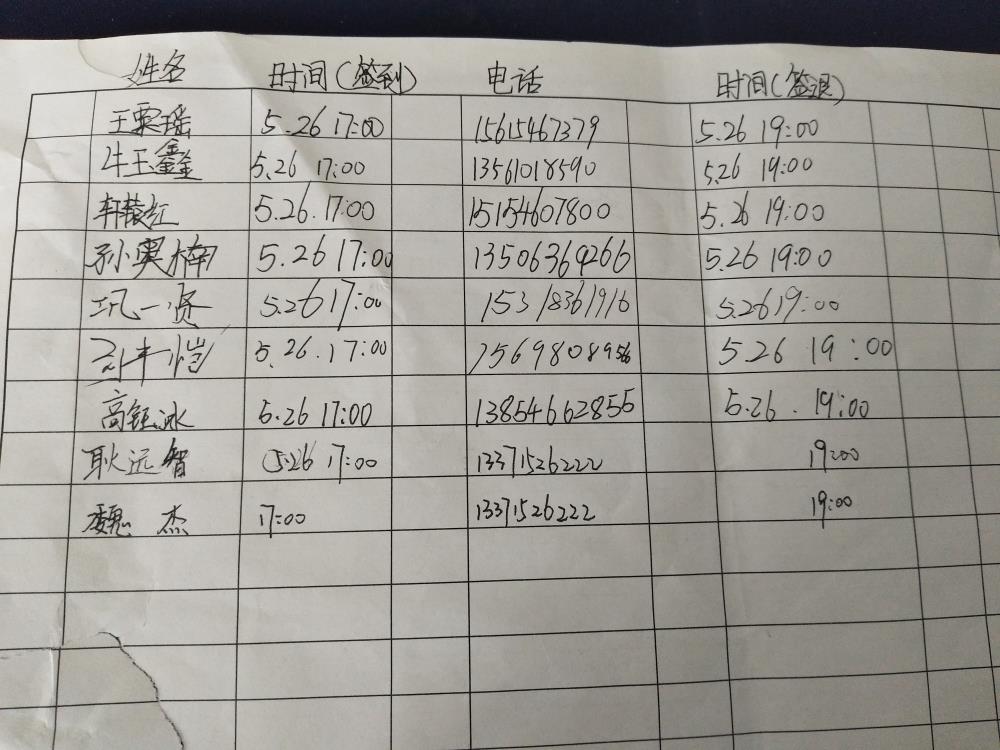 姓名 时间(签到) 电话 时间(签退)
王雯瑶 5.26 17:00 15615467379 5.26 19:00
牛玉鑫 5.26 17:00 13561018590 5.26 19:00
5.26.17:00 15154607800 5.26 19:00
孙奥楠 5.26 17:00 13506369266 5.26 19:00
巩一贤 5.26 17:00 15318361916 5.26 19:00
5.26.17:00 5.26 19:00
高钰冰 5.26 17:00 13854662855 5.26. 19:00
耿远智 5.26 17:00 13371526222 19:00
魏 杰 17:00 13371526222 19:00